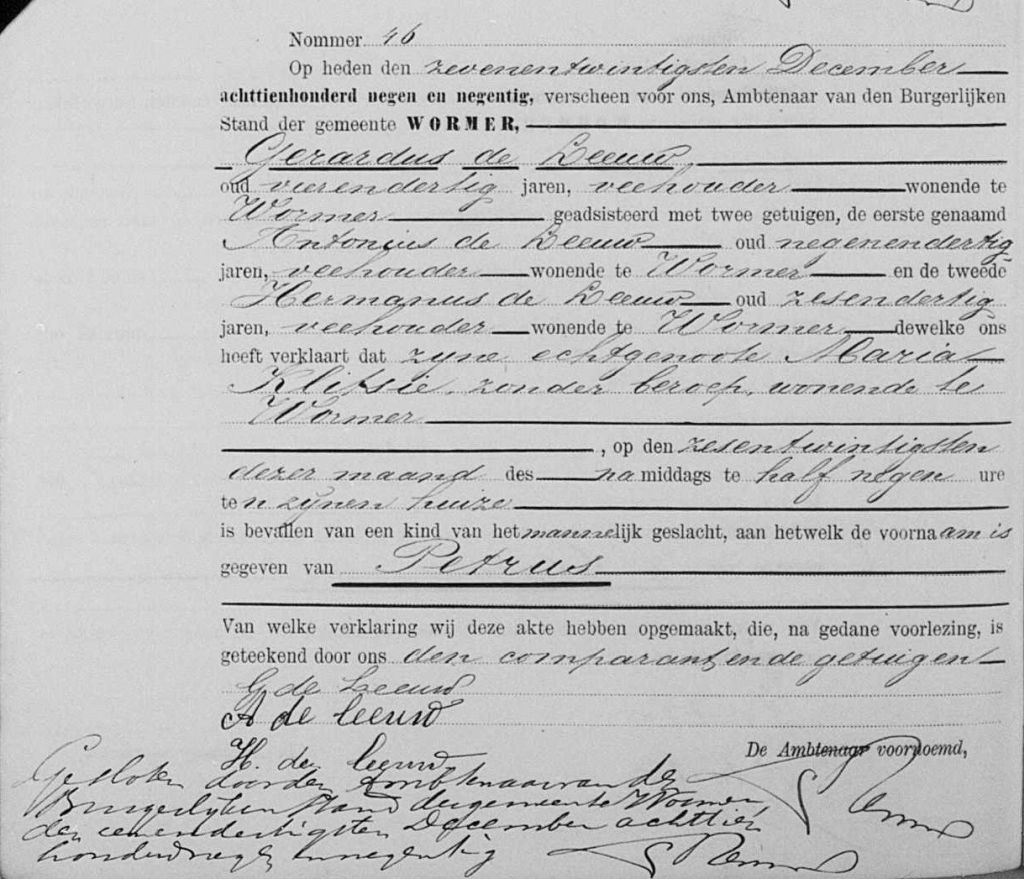 Nommer 46
Op heden den zevenentwintigsten December
achttienhonderd negen en negentig, verscheen voor ons, Ambtenaar van den Burgerlijken
Stand der gemeente WORMER,
Gerardus de Leeuw,
oud vierendertig jaren, veehouder wonende te
Wormer geadsisteerd met twee getuigen, de eerste genaamd
Antonius de Leeuw oud negenendertig
jaren, veehouder wonende te Wormer en de tweede
Hermanus de Leeuw oud zesendertig
jaren, veehouder wonende te Wormer dewelke ons
heeft verklaart dat zyne echtgenoote Maria
Klitsie, zonder beroep, wonende te
Wormer
, op den zesentwintigsten
dezer maand des namiddags te half negen ure
ten zynen huize
is bevallen van een kind van het mannelijk geslacht, aan hetwelk de voornaam is
gegeven van Petrus
Van welke verklaring wij deze akte hebben opgemaakt, die, na gedane voorlezing, is
geteekend door ons den comparant en de getuigen
G de Leeuw
A de leeuw
H. de leeuw
De Ambtenaar voornoemd,
Gesloten door den Ambtenaar van den
Burgerlyken stand der gemeente Wormer,
den eenendertigsten December achttien
honderd negen en negentig